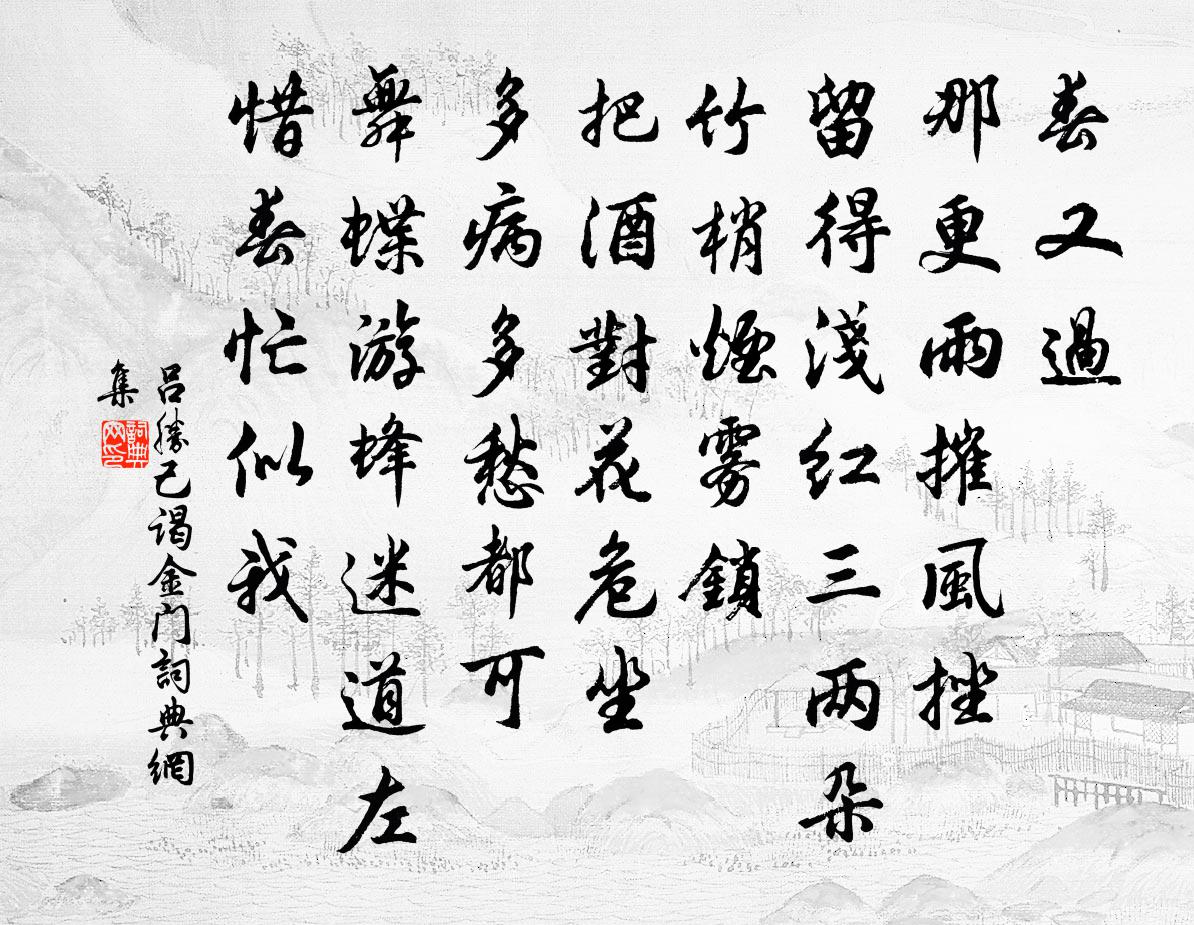 春又過
那更雨摧風挫
留得淺紅三两朵
竹梢煙雾鎖
把酒對花危坐
多病多愁都可
舞蝶游蜂迷道左
惜春忙似我
吕勝己谒金门詞典網
集
詞典网印